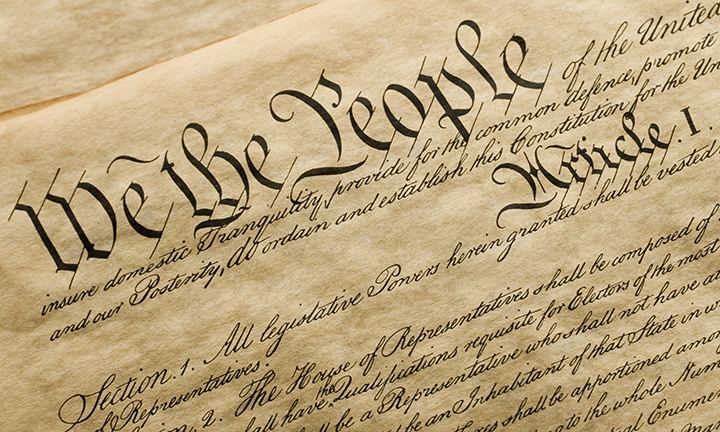 We the People of the United
insure domestic Tranquility, provide for the common defence, promote
and our Posterity, do ordain and establish this Constitution for the Un
Article. I.
Section. 1. All legislative Powers herein granted shall be vested
of Representatives.
n. 2. The House of Representatives shall be composed of
all have the Qualifications requisite for Electors of the most
be a Representative who shall not have a
be an Inhabitant of that State in w
shall be apportioned amon
to the whole Num
Enumer